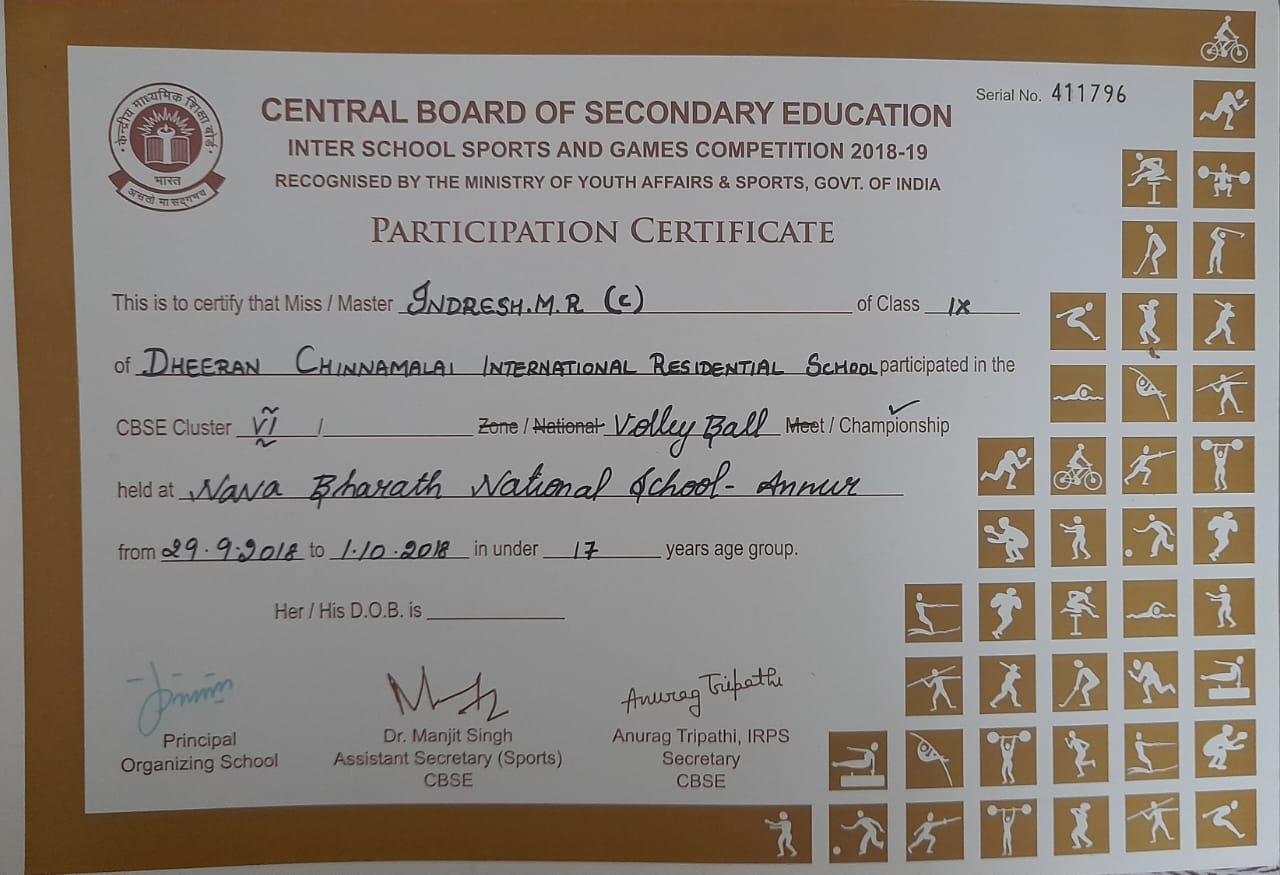 Serial No. 411796
केन्द्रीय माध्यमिक शिक्षा बोर्ड
भारत
असतो मा सद्गमय
CENTRAL BOARD OF SECONDARY EDUCATION
INTER SCHOOL SPORTS AND GAMES COMPETITION 2018-19
RECOGNISED BY THE MINISTRY OF YOUTH AFFAIRS & SPORTS, GOVT. OF INDIA
PARTICIPATION CERTIFICATE
This is to certify that Miss / Master INDRESH.M.R (C) of Class IX
of DHEERAN CHINNAMALAI INTERNATIONAL RESIDENTIAL SCHOOL participated in the
CBSE Cluster VI / Zone / National Volley Ball Meet / Championship
held at Nava Bharath National School - Annur
from 29.9.2018 to 1.10.2018 in under 17 years age group.
Her / His D.O.B. is
Anurag Tripathi
Principal Dr. Manjit Singh Anurag Tripathi, IRPS
Organizing School Assistant Secretary (Sports) Secretary
CBSE CBSE